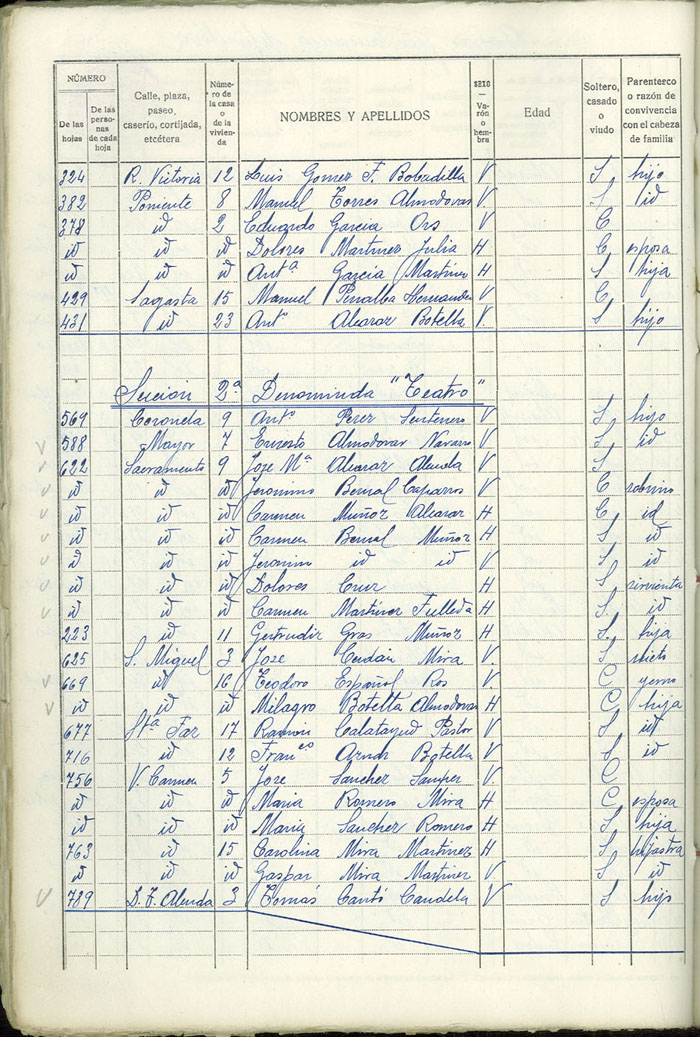 NÚMERO
De las hojas
De las personas de cada hoja
Calle, plaza, paseo, caserío, cortijada, etcétera
Número de la casa o de la vivienda
NOMBRES Y APELLIDOS
SEXO — Varón o hembra
Edad
Soltero, casado o viudo
Parenterco o razón de convivencia con el cabeza de familia
324 R. Victoria 12 Luis Gomez F. Bobadilla V S hijo
382 Poniente 8 Manuel Torres Almodovar V S id
378 id 2 Eduardo Garcia Ors V C
id id id Dolores Martinez Julia H C esposa
id id id Antª Garcia Martinez H S hija
429 Sagasta 15 Manuel Penalba Hernandez V C
431 id 23 Antº Alcaraz Botella V. S hijo
Sección 2ª Denominda "Teatro"
569 Coronela 9 Antº Perez Sentenero V S hijo
588 Mayor 7 Ernesto Almodovar Navarro V S id
622 Sacramento 9 Jose Mª Alcaraz Alenda V S
id id id Jeronimo Bernal Caparros V C sobrino
id id id Carmen Muñoz Alcaraz H C id
id id id Carmen Bernal Muñoz H S id
id id id Jeronimo id id V S id
id id id Dolores Cruz H S sirvienta
id id id Carmen Martinez Fulleda H S id
223 id 11 Gertrudiz Gras Muñoz H S. hija
625 S. Miguel 3 Jose Cerdán Mira V. S nieto
669 id 16 Teodoro Español Ros V C yerno
id id id Milagro Botella Almodovar H C hija
677 Stª Faz 17 Ramón Calatayud Pastor V S id
716 id 12 Franco Aznar Botella V S id
756 V. Carmen 5 Jose Sanchez Samper V. C
id id id Maria Romero Mira H C esposa
id id id Maria Sanchez Romero H S hija
763 id 15 Carolina Mira Martinez H S hijastra
id id id Gaspar Mira Martinez V. S id
789 D. T. Alenda 3 Tomás Cantó Candela V S hijo